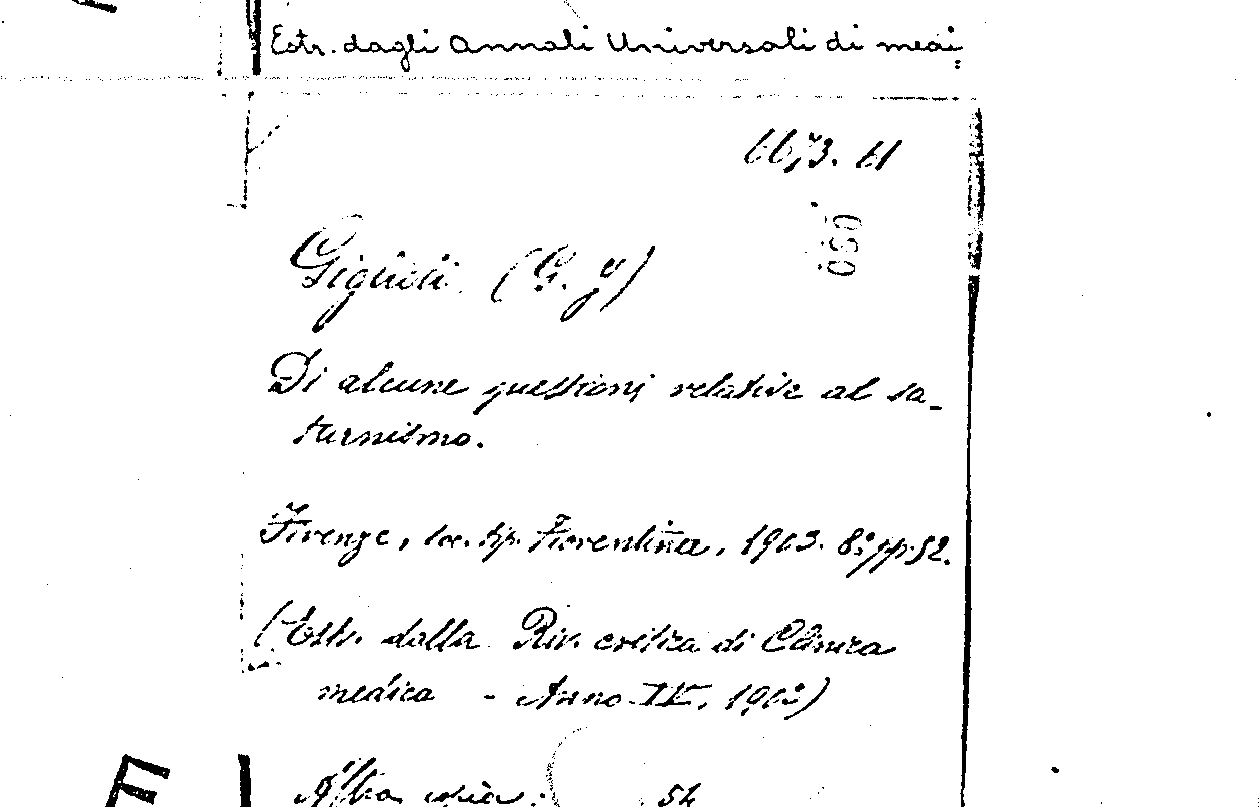 Estr. dagli Annali Universali di medi
6673. 61
050
Giglioli (G. Y)
Di alcune questioni relative al sa-
turnismo.
Firenze, soc. tip. Fiorentina, 1903. 8° pp. 52.
(Estr. dalla Riv. critica di Clinica
medica - Anno IV, 1903)
Altra copia:
E